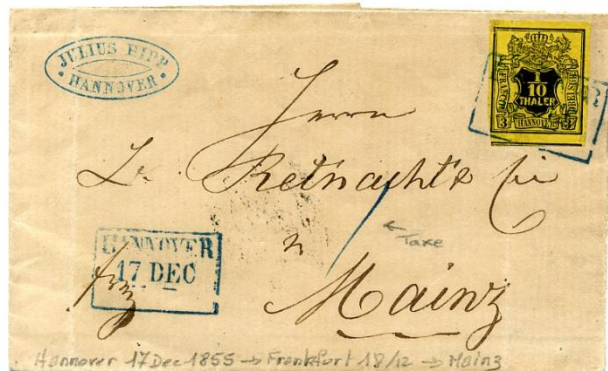 JULIUS HIPP
HANNOVER
1/10
THALER
HANNOVER
Herrn
Reinach & Cie
in
Mainz
← Taxe
HANNOVER
17 DEC
frei
Hannover 17 Dec 1855 → Frankfurt 18/12 → Mainz